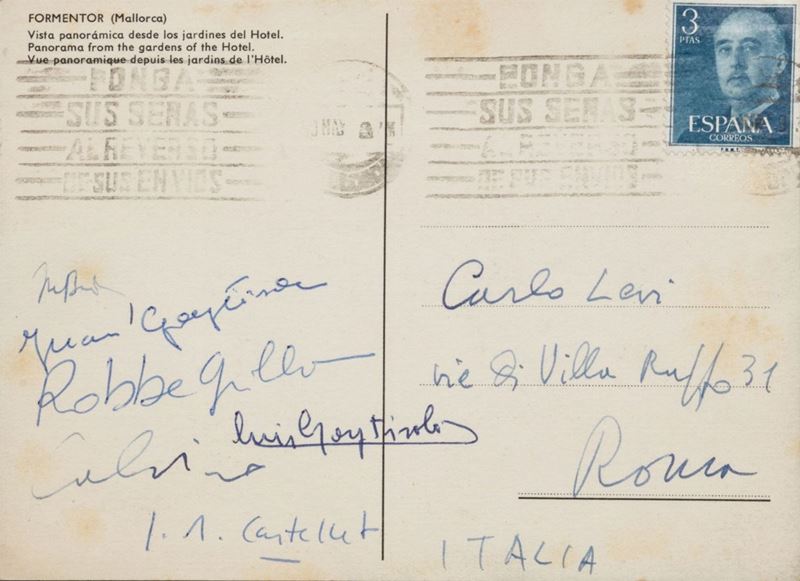 FORMENTOR (Mallorca)
Vista panorámica desde los jardines del Hotel.
Panorama from the gardens of the Hotel.
Vue panoramique depuis les jardins de l'Hôtel.
PONGA
SUS SEÑAS
AL REVERSO
DE SUS ENVIOS
PONGA
SUS SEÑAS
AL REVERSO
DE SUS ENVIOS
3
PTAS
ESPAÑA
CORREOS
Juan Goytisolo
Robbe Grillet
Luis Goytisolo
Calvino
J. M. Castellet
Carlo Levi
via di Villa Ruffo 31
Roma
ITALIA